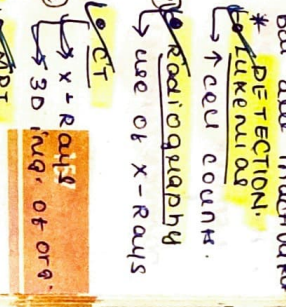 * DETECTION.
Lukemias
↑ cell count.
Radiography
use of X-Rays
CT
X-Rays
3D img. of org.
MRI